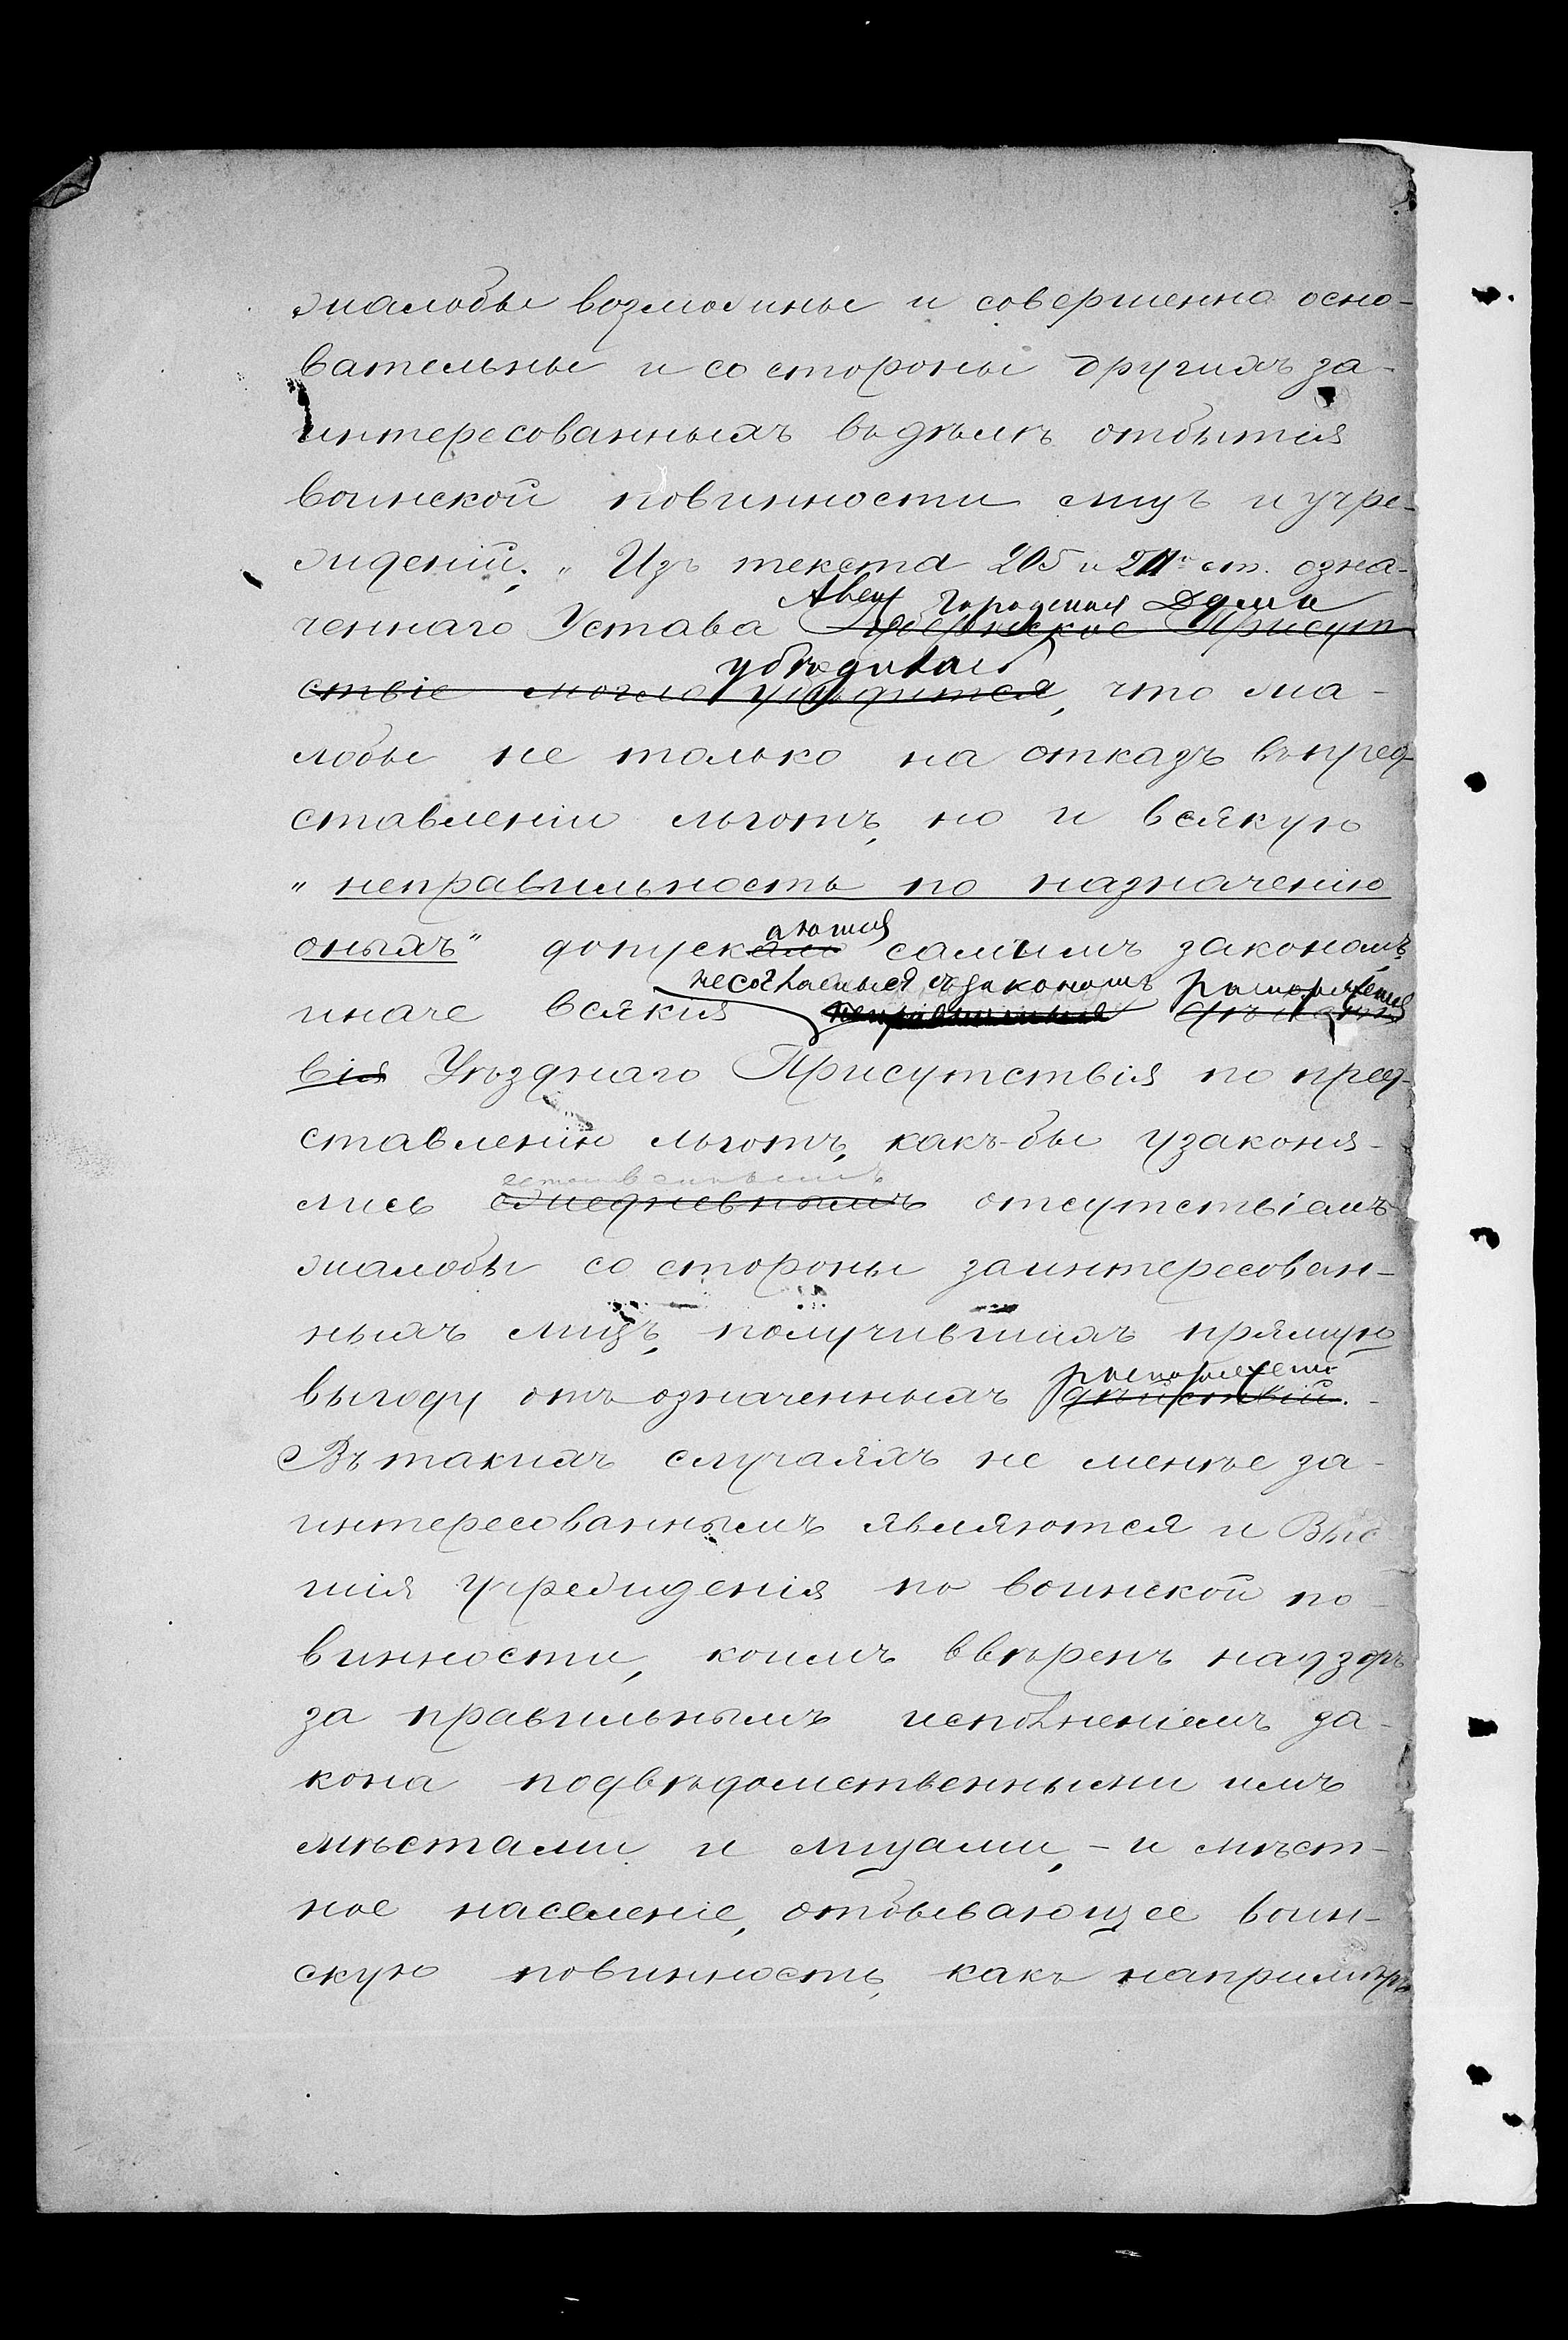 жалобы возможны и совершенно осно-
вательны и со стороны другихъ за-
интересованныхъ въ дѣлѣ отбытія
воинской повинности лицъ и учре-
жденій. „ Изъ текста 205 и 211 ст. озна-
Городская Дума
ченнаго Устава Губернское Присут
убѣдилась
ствіе могло убѣдится, что жа-
лобы не только на отказъ въ пред-
ставленіи льготъ, но и всякую
„неправильность по назначенію
аются
оныхъ" допускало самымъ закономъ,
несогласныя съ закономъ распоряженія
иначе всякія неправильныя дѣйст
вія Уѣзднаго Присутствія по пред-
ставленію льготъ, какъ-бы узаконя-
лись ежедневнымъ отсутствіемъ
жалобы со стороны заинтересован-
ныхъ лицъ, получившихъ прямую
распоряженій
выгоду отъ означенныхъ дѣйствій. -
Въ такихъ случаяхъ не менѣе за-
интересованнымъ являются и Выс
шія учрежденія по воинской по-
винности, коимъ ввѣренъ надзоръ
за правильнымъ исполненіемъ за-
кона подвѣдомственными имъ
мѣстами и лицами, - и мѣст-
ное населеніе, отбывающее воин-
скую повинность, какъ напримѣръ